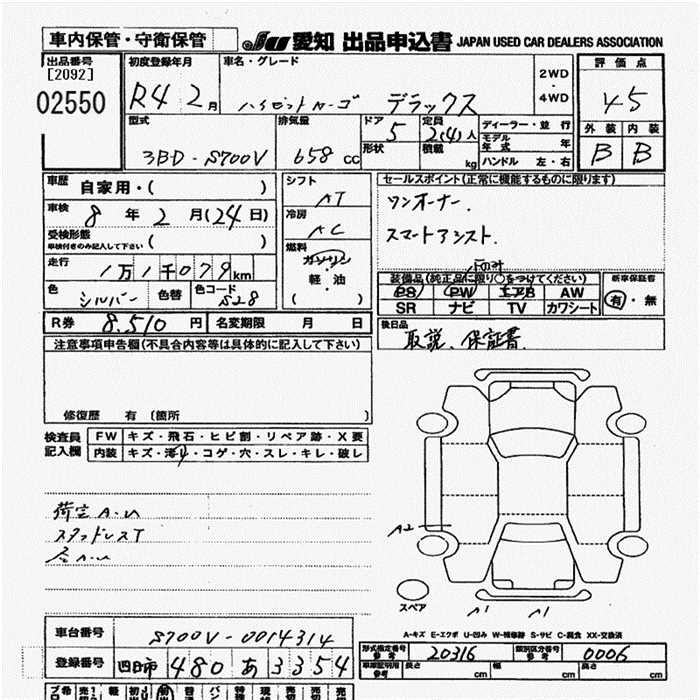 車内保管・守衛保管
JU 愛知 出品申込書 JAPAN USED CAR DEALERS ASSOCIATION
出品番号
[2092]
02550
初度登録年月
R4 2 月
車名・グレード
ハイゼットカーゴ デラックス
2WD
・
4WD
評価点
45
外装 内装
B B
型式
3BD-S700V
排気量
658 cc
ドア
5
形状
定員
2(4)人
積載
kg
ディーラー・並行
モデル年式 年
ハンドル 左・右
車歴
自家用・( )
車検
8 年 2 月(24日)
受検形態
車検付きのみ記入して下さい ( )
走行
1万1千079km
色
シルバー
色替
色コード
S28
シフト
AT
冷房
AC
燃料
ガソリン
軽・油
( )
セールスポイント(正常に機能するものに限ります)
ワンオーナー、
スマートアシスト、
Fのみ
装備品(純正品に限り〇をつけてください)
PS PW エアB AW
SR ナビ TV カワシート
新車保証書
有・無
R券 8.510 円
名変期限 月 日
後日品
取説、保証書
注意事項申告欄(不具合内容等は具体的に記入して下さい)
修復歴 有 〔箇所 〕
検査員
記入欄
FW キズ・飛石・ヒビ割・リペア跡・X要
内装 キズ・汚れ・コゲ・穴・スレ・キレ・破レ
荷室A.U
スタッドレスT
A2
スペア
A1 A1
A-キズ E-エクボ U-凹み W-補修跡 S-サビ C-腐食 XX-交換済
車台番号 S700V-0014314
登録番号 四日市 480 あ 3354
形式指定番号
参考
20316
類別区分番号
参考
0006
車庫証明用
参考
長さ cm 幅 cm 高さ cm